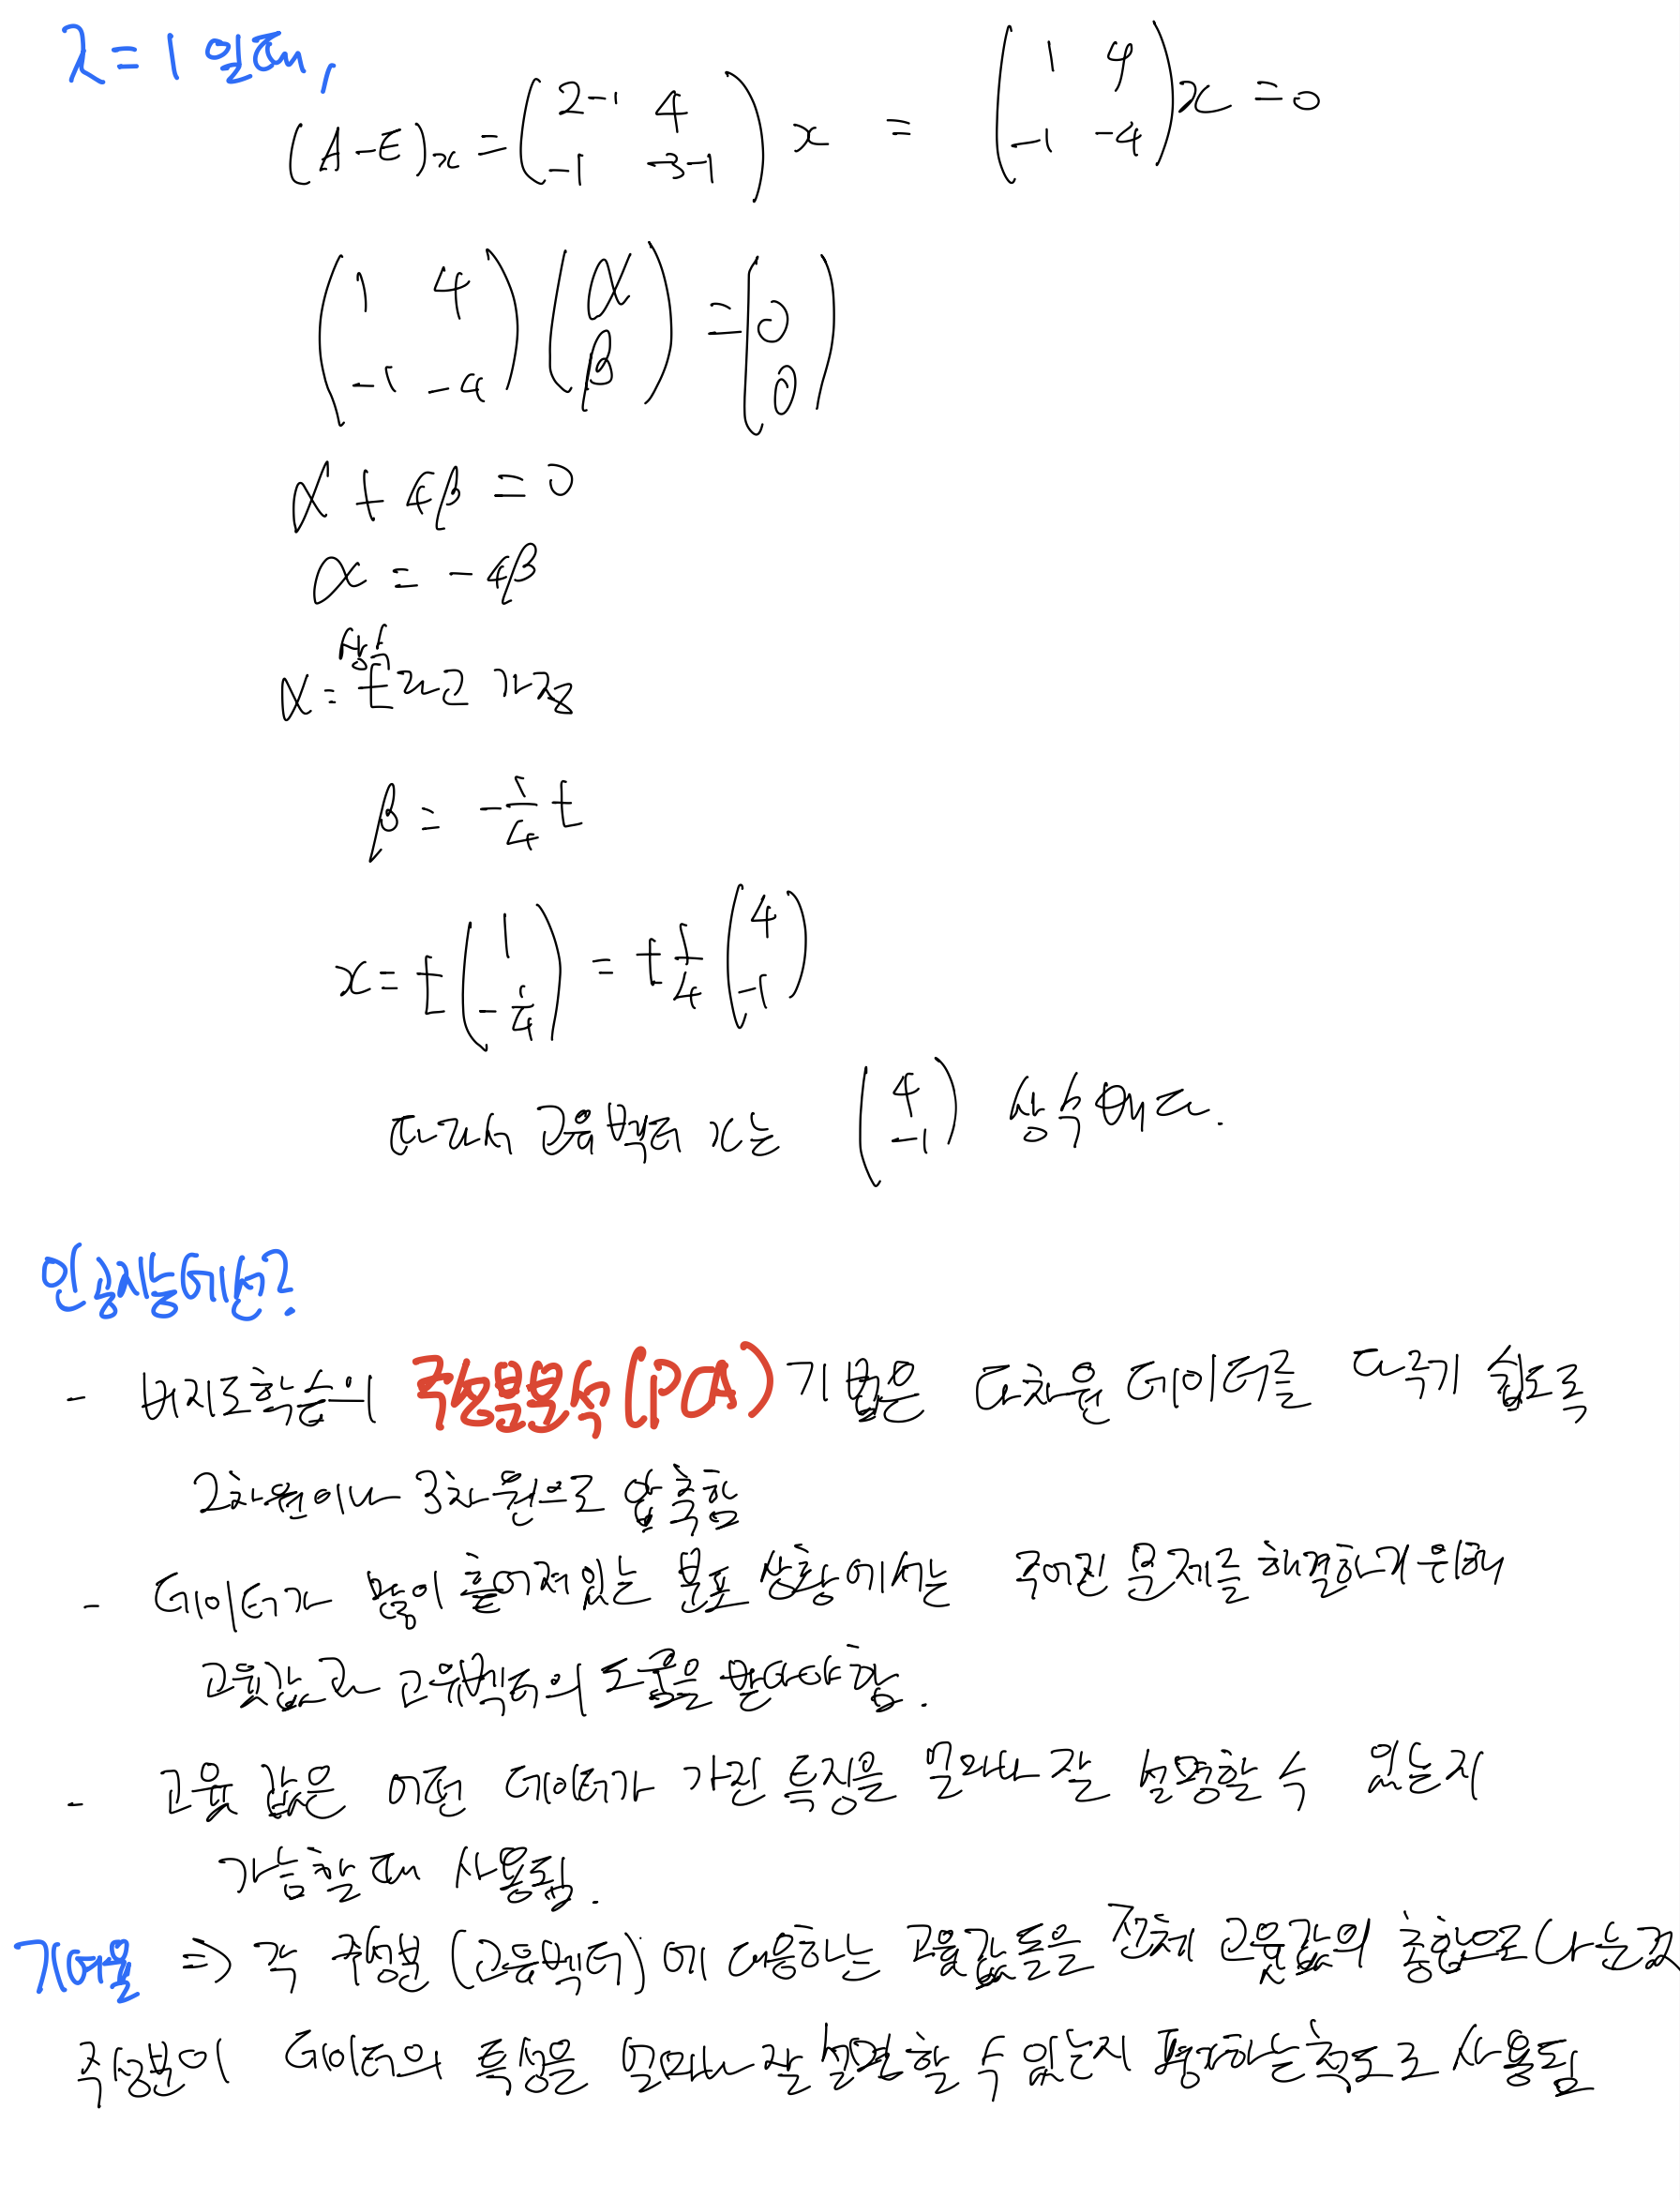 λ = 1 일때,
(A-E)x = (2-1 4 -1 -3-1) x = (1 4 -1 -4) x = 0
(1 4 -1 -4) (α β) = (0 0)
α + 4β = 0
α = -4β
상수
α = t라고 가정
β = -1/4 t
x = t (1 -1/4) = t 1/4 (4 -1)
따라서 고유벡터 x는 (4 -1) 상수배다.
인공지능에선?
- 비지도학습의 주성분분석(PCA) 기법은 다차원 데이터를 다루기 쉽도록
2차원이나 3차원으로 압축함
- 데이터가 많이 흩어져있는 분포 상황에서는 주어진 문제를 해결하기 위해
고윳값과 고유벡터의 도움을 받아야 함.
- 고윳값은 어떤 데이터가 가진 특징을 얼마나 잘 설명할 수 있는지
가늠할 때 사용됨.
기여율 => 각 주성분(고유벡터)에 대응하는 고윳값들을 전체 고윳값의 총합으로 나눈것
주성분이 데이터의 특성을 얼마나 잘 설명할 수 있는지 평가하는 척도로 사용됨